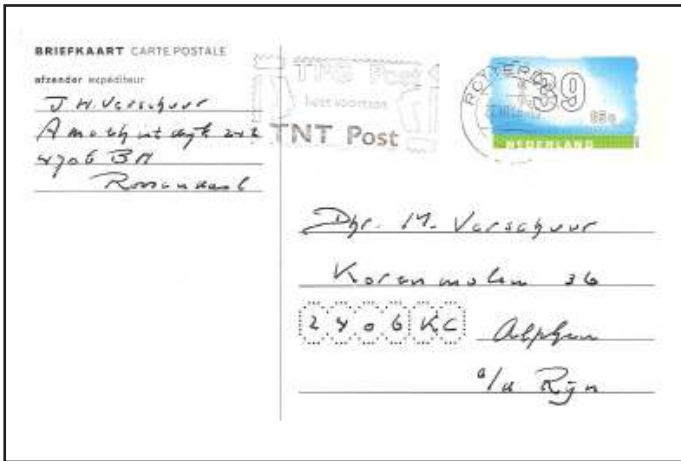 BRIEFKAART CARTE POSTALE
afzender expéditeur
J H. Verschuur
242
4706 BH
Roosendaal
TPG Post
heet voortaan
TNT Post
ROTTERD
39
NEDERLAND
Dhr. M. Verschuur
Korenmolen 36
2406 KC Alphen
a/d Rijn